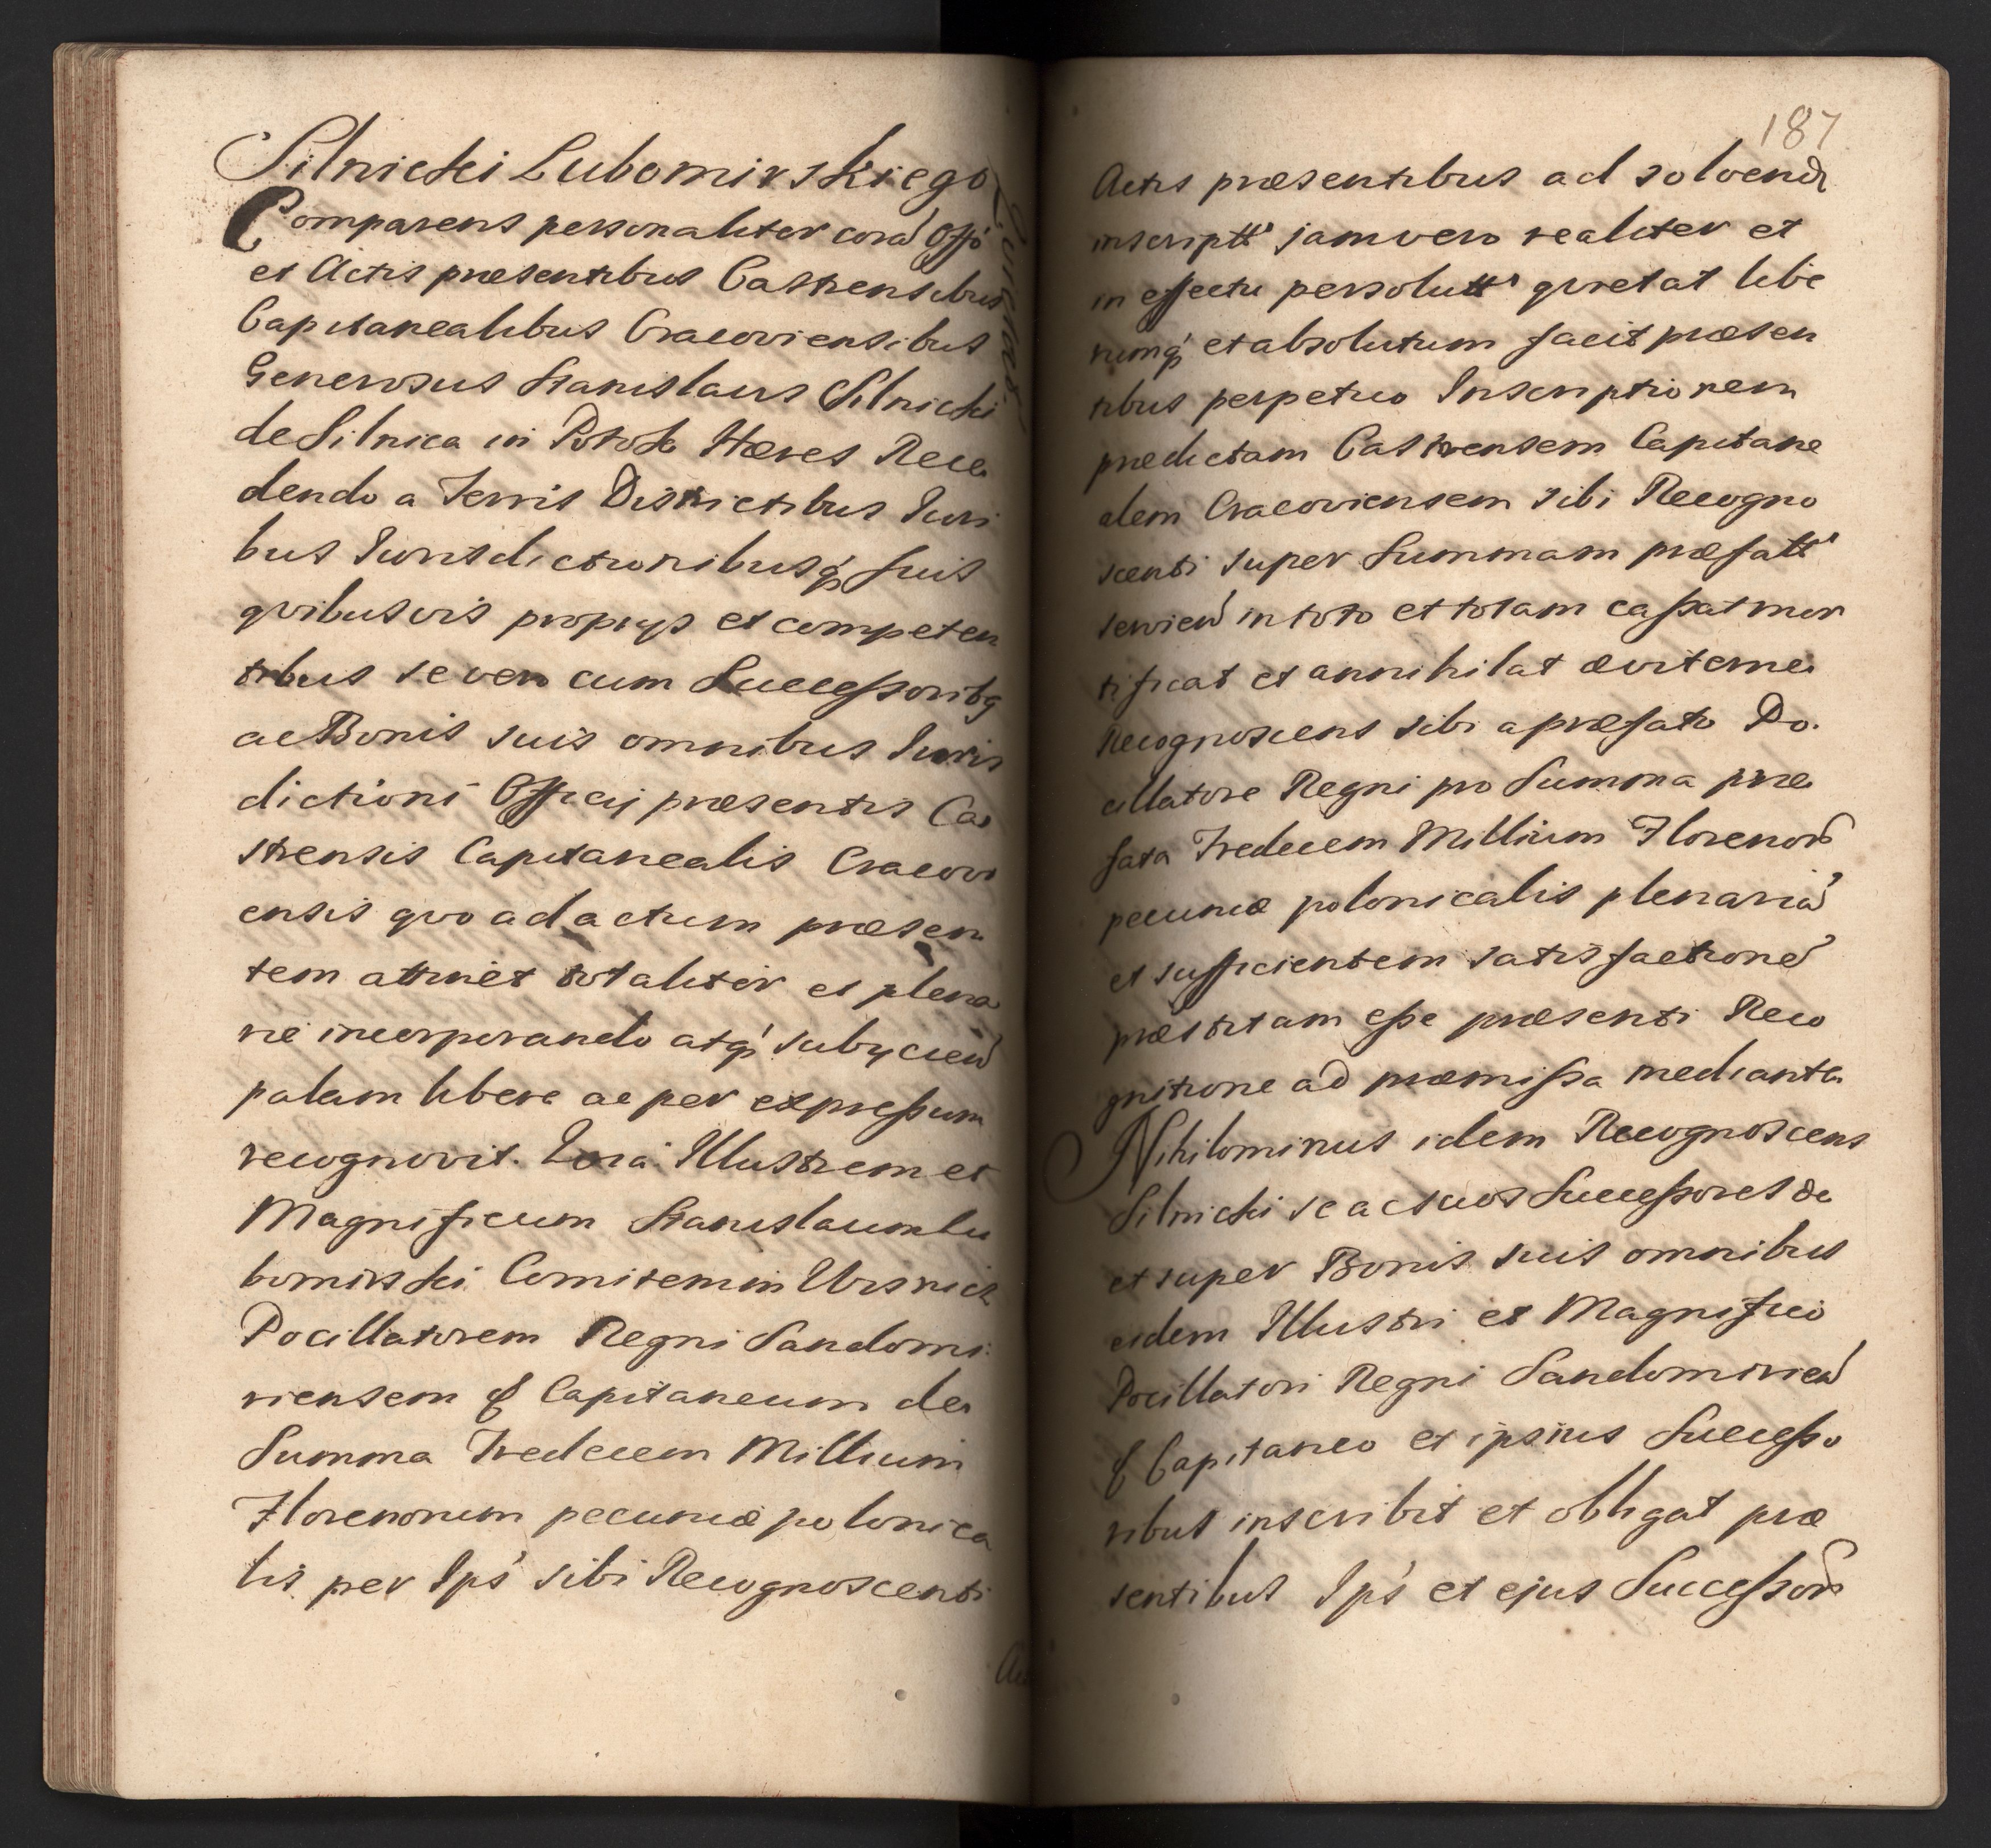 Silnicki Lubomirskiego
Comparens personaliter corā Offō
et Actis præsentibus Castrensibus
Capitanealibus Cracoviensibus
Generosus Stanislaus Silnicki
de Silnica in Potok Hæres Rece
dendo a Terris Districtibus Iuri
bus Iurisdictionibusq́ suis
qvibusvis proprys et competen
tibus se vero cum Successoribq
ac Bonis suis omnibus Iuris
dictioni Officij præsentis Ca
strensis Capitanealis Cracovi
ensis qvo ad actum præsen
tem attinet totaliter et plena
rie incorporando atq́ subyciend
palam libere ac per expressum
recognovit. Qvia Illustrem et
Magnificum Stanislaum Lu
bomirski Comitem in Wisnicz
Pocillatorem Regni Sandomi
riensem & Capitaneum de
Summa Tredecem Millium
Florenorum pecuniæ polonica
lis per Ips' sibi Recognoscenti
187
Actis præsentibus ad solvend
inscript' jamvero realiter et
in effectu persolut' qvietat libe
rumq́ et absolutum facit præsen
tibus perpetuo Inscriptionem
prædictam Castrensem Capitane
alem Cracoviensem sibi Recogno
scenti super Summam præfat'
servien in toto et totam cassat mor
tificat et annihilat æviterne
Recognoscens sibi a præfato Po.
cillatore Regni pro Summa præ
fata Tredecem Millium Florenor
pecuniæ polonicalis plenariā
et sufficientem satisfactionē
præstitam esse præsenti Reco
gnitione ad præmissa mediante
Nihilominus idem Recognoscens
Silnicki se ac suos Successores de
et super Bonis suis omnibus
eidem Illustri et Magnifico
Pocillatori Regni Sandomirien
& Capitaneo et ipsius Successo
ribus inscribit et obligat præ
sentibus Ips' et ejus Successor